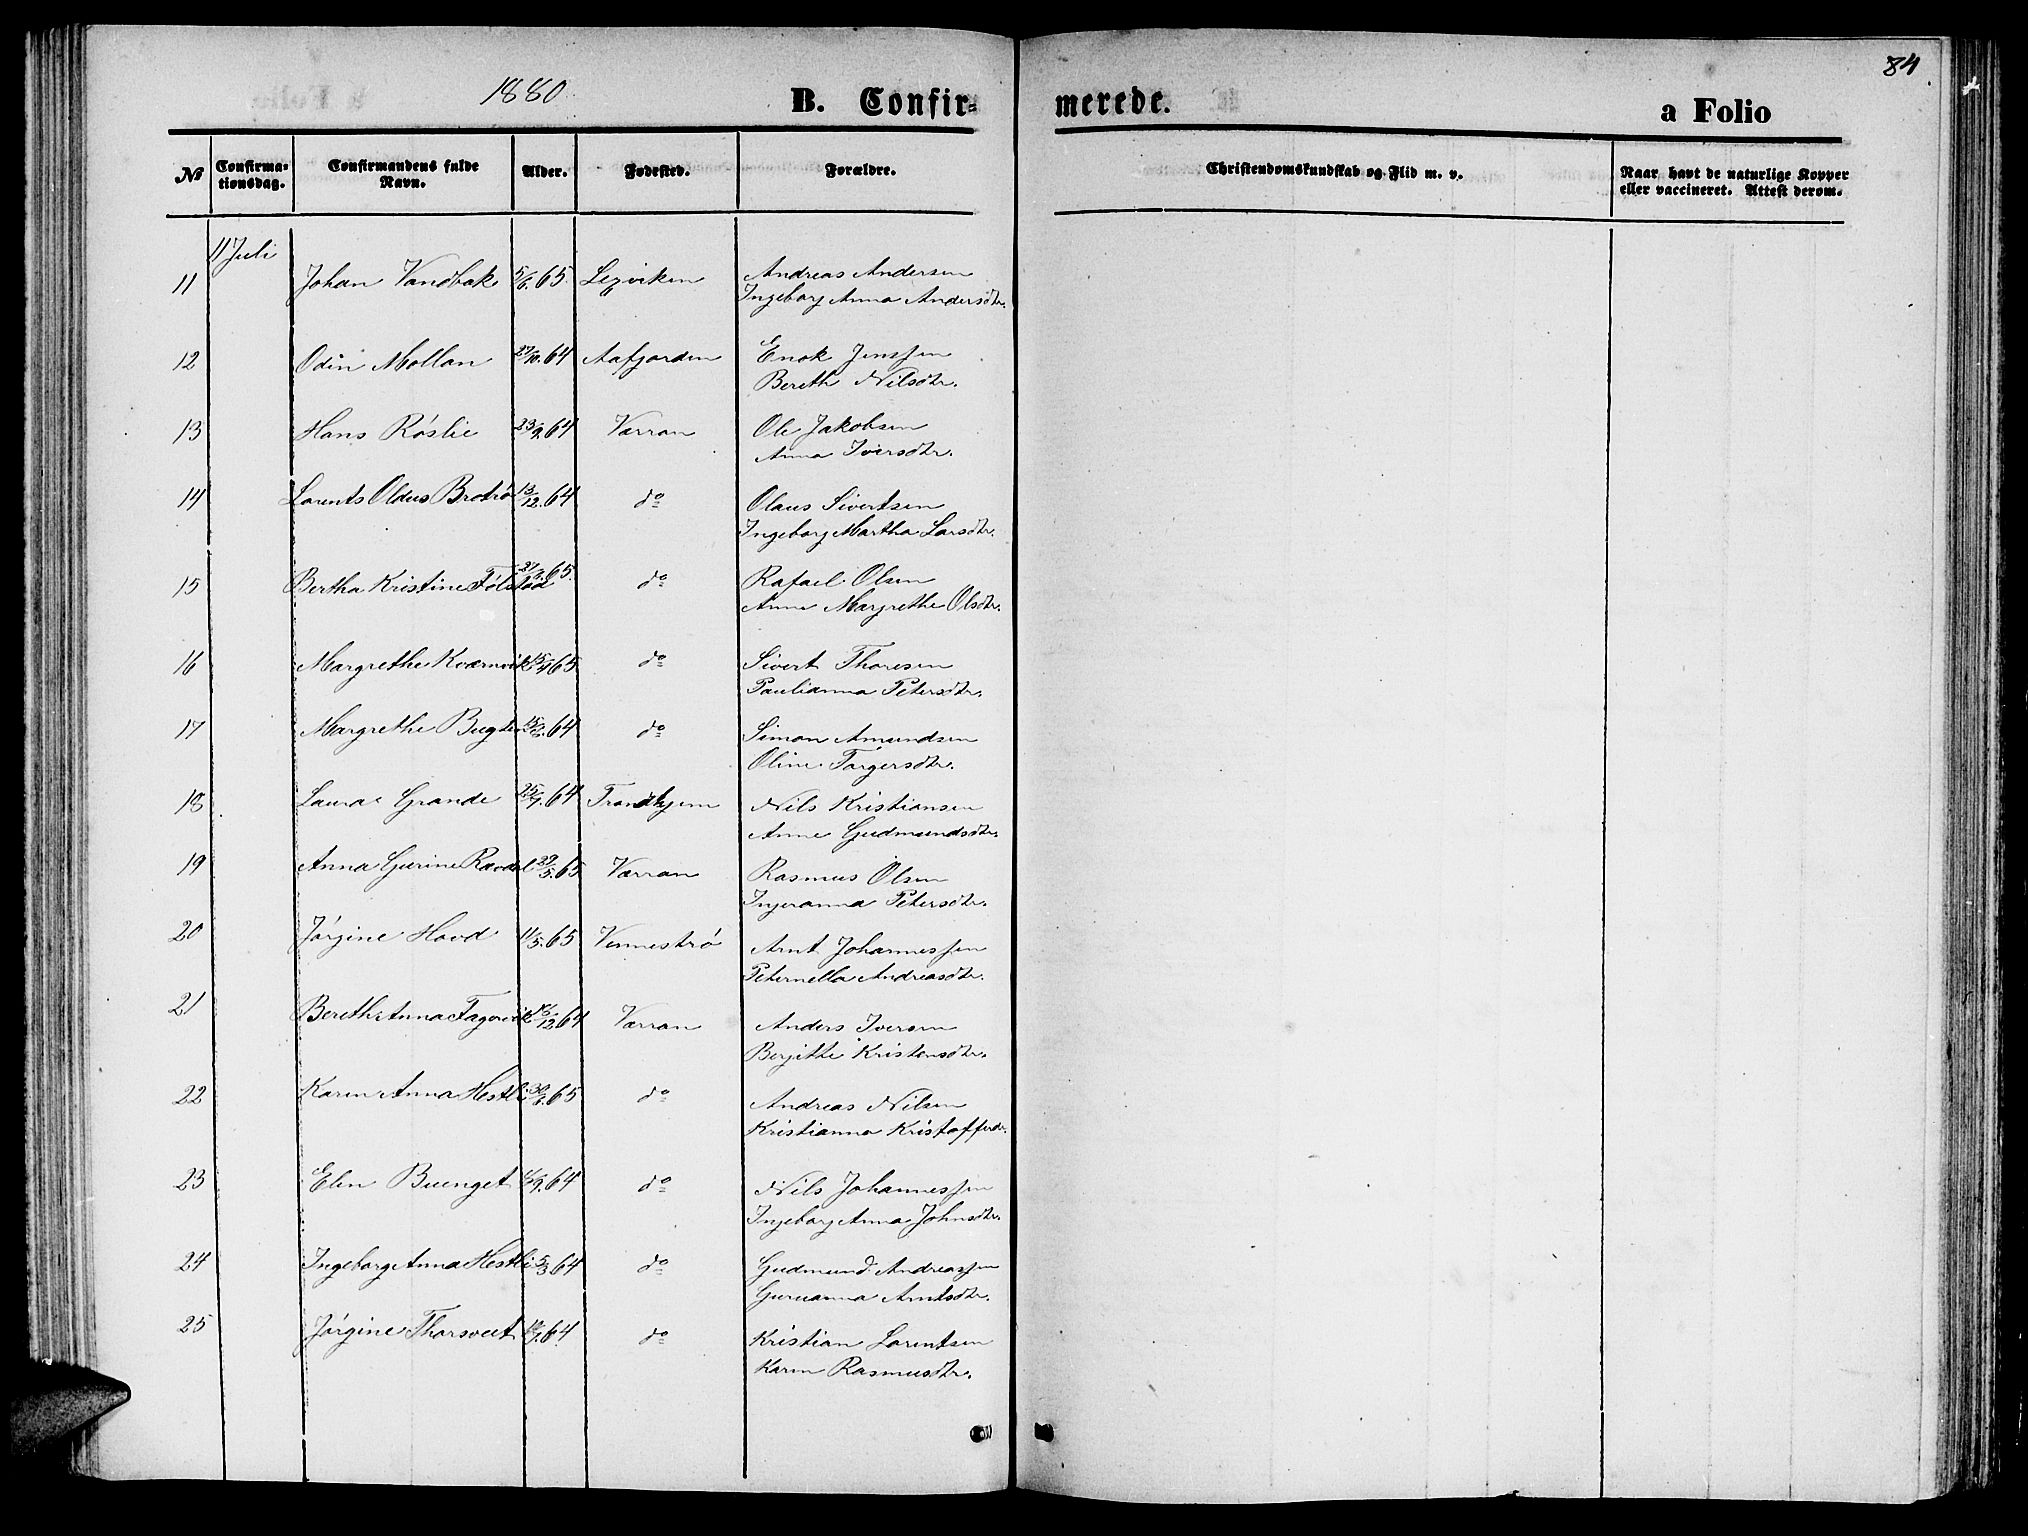 84
1880 B. Confir= merede. a Folio
No Confirma-tionsdag. Confirmandens fulde Navn. Alder. Fødested. Forældre. Christendomskundskab og Flid m. v. Naar havt de naturlige Kopper eller vaccineret. Attest derom.
11 Juli
11 Johan Vandbak 5/6. 65. Lexviken Andreas Andersen
Ingeborg Anna Andersdtr.
12 Odin Mollan 27/10. 64 Aafjorden Enok Jenssen
Bereth Nilsdtr.
13 Hans Røslie 23/9. 64 Værran Ole Jakobsen
Anna Iversdtr.
14 Lorents Oldus Brotrø 13/12. 64 do Olaus Sivertsen
Ingeborg Martha Larsdtr.
15 Bertha Kristine Følstad 65. do Rafael Olsen
Anne Margrethe Olsdtr.
16 Margrethe Kvernvik 65. do Sivert Thoresen
Paulianna Petersdtr.
17 Margrethe Bugten 64 do Simon Amundsen
Oline Torgersdtr.
18 Laura Grande 25/7. 64 Trondhjem Nils Kristiansen
Anne Gudmundsdtr.
19 Anna Gurine Ravdal 29/5. 65 Værran Rasmus Olsen
Ingeranna Petersdtr.
20 Jørgine Hovd 11/5. 65 Vennestrø Arnt Johannessen
Peternella Andreasdtr.
21 Bereth Anna Fagervik 16/12 64 Værran Anders Iversen
Bergitte Kristensdtr.
22 Karen Anna Hestli 30/6. 65 do Andreas Nilsen
Kristianna Kristofferdr.
23 Elen Buenget 9. 64 do Nils Johannessen
Ingeborg Anna Johnsdtr.
24 Ingeborg Anna Hestli 5/3 64 do Gudmund Andreassen
Guruanna Arntsdtr.
25 Jørgine Thorsveet 64 do Kristian Lorentsen
Karen Rasmusdtr.